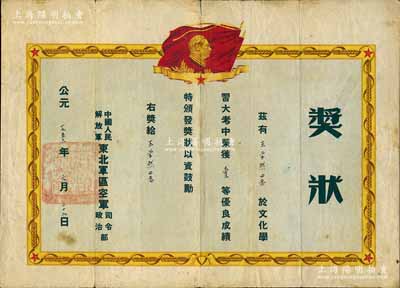 獎狀
茲有 於文化學
習大考中榮獲 等優良成績
特頒發獎狀以資鼓勵
右獎給
中國人民解放軍 東北軍區空軍 司令部 政治部
公元 年 月 日
上海陽明拍賣
上海陽明拍賣